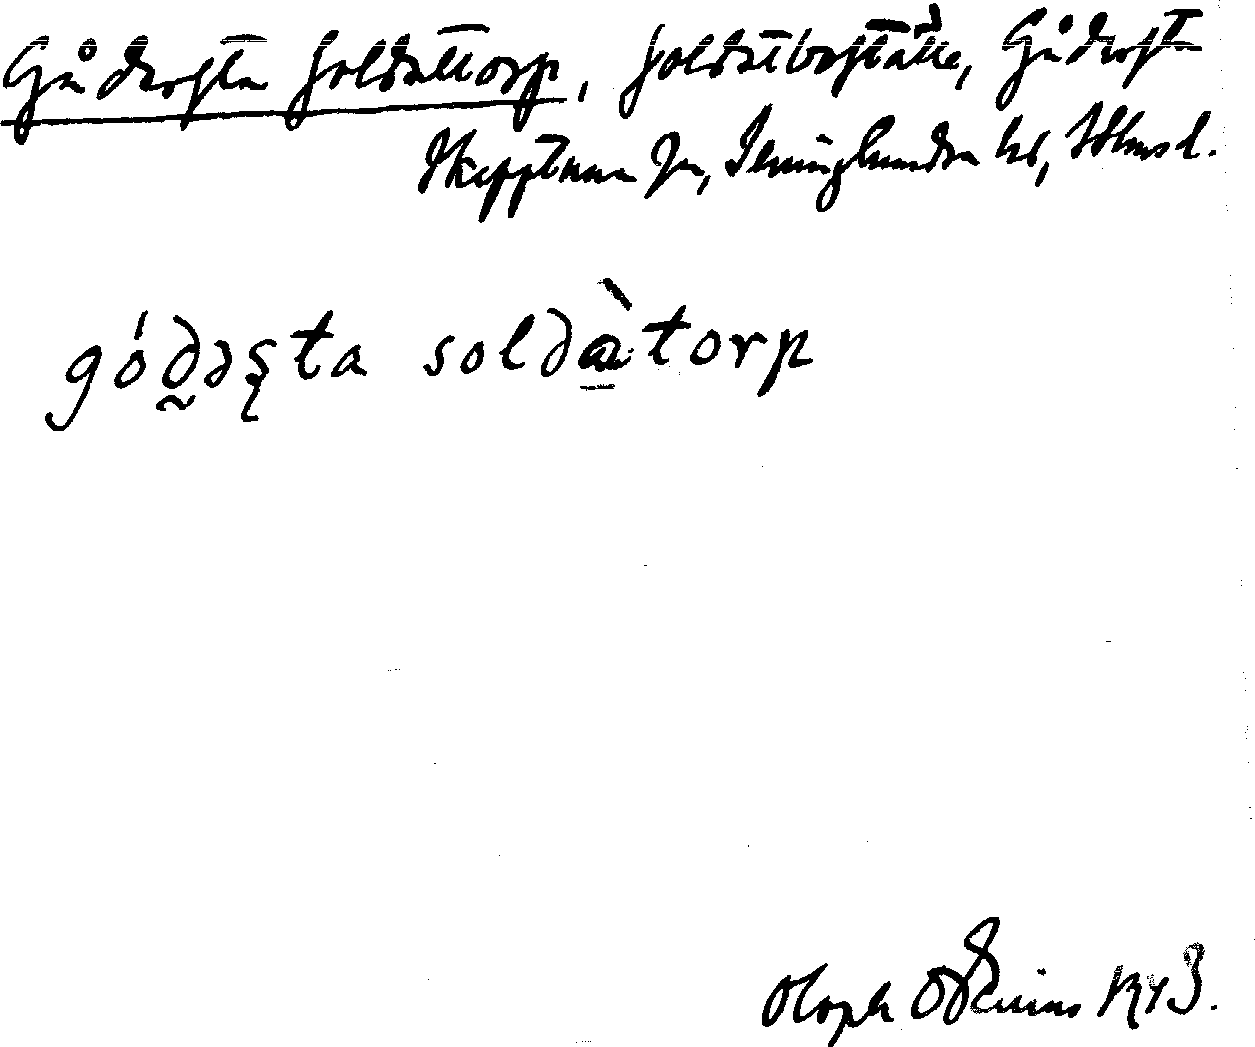 Gådersta Soldattorp, Soldatboställe, Gådersta
Skepptuna sn, Seminghundra hd, Uppl.
gó̀dəsta soldàtorp
Oloph Odenius 1943.